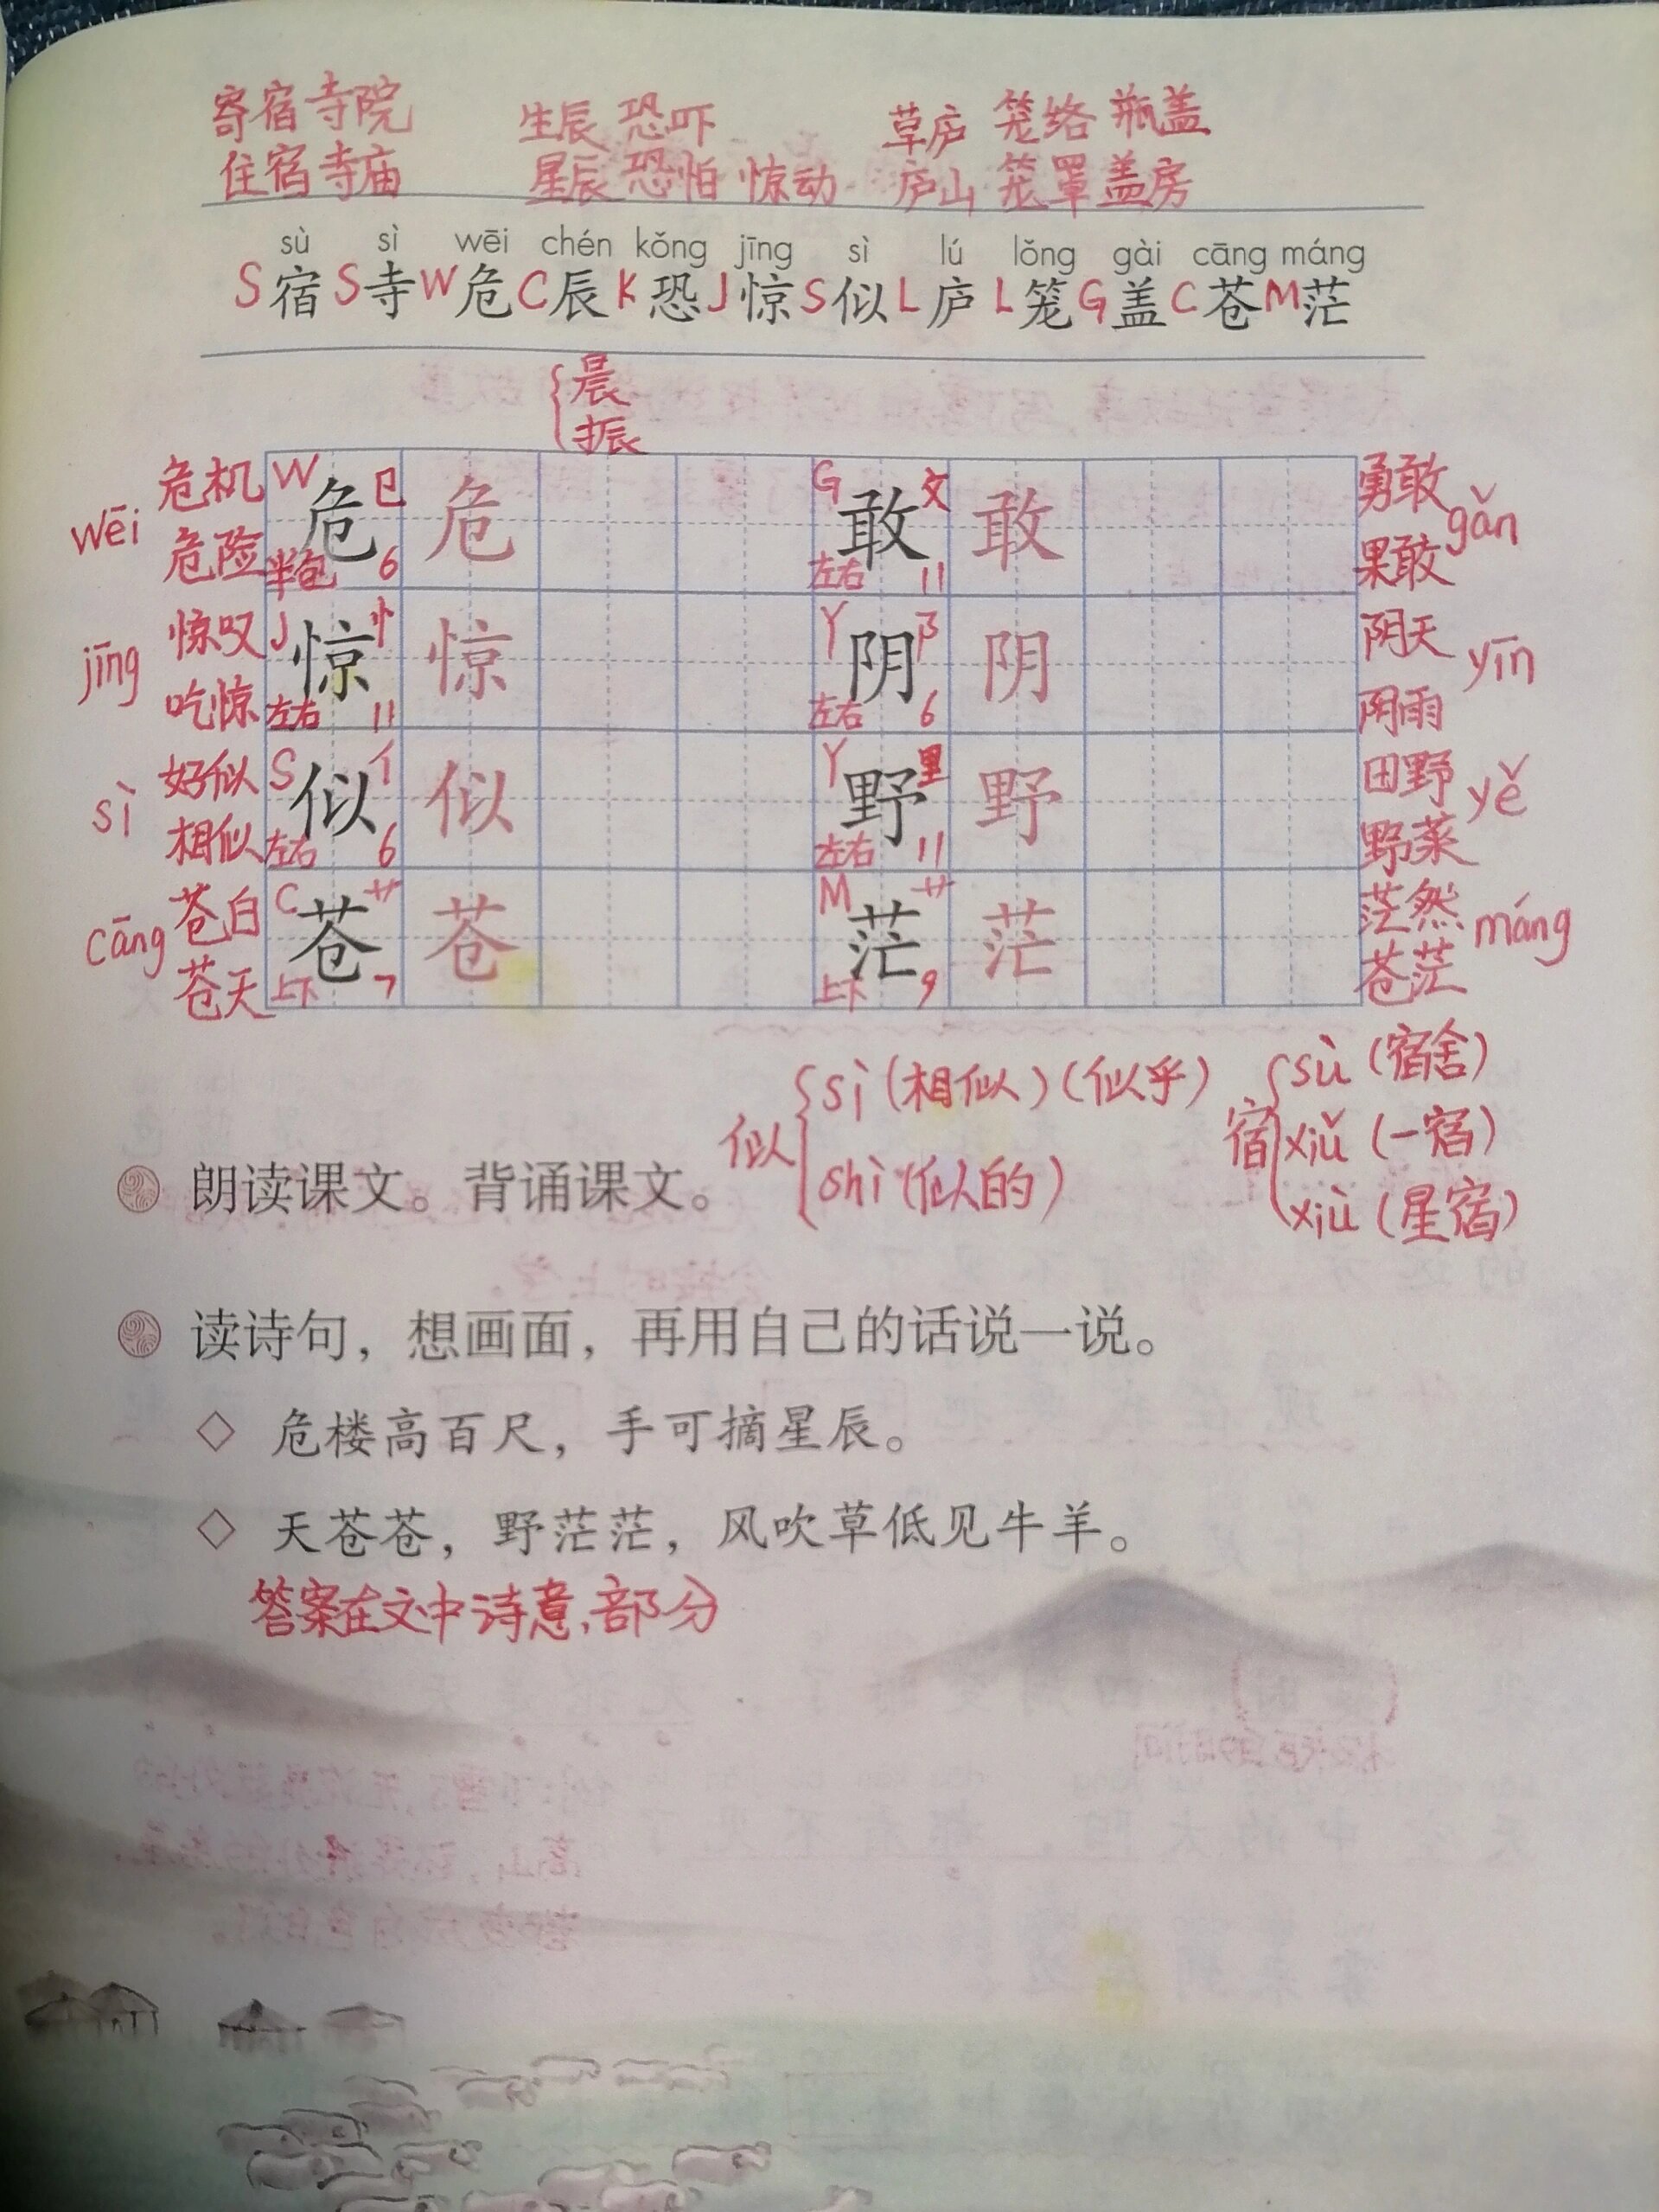 寄宿 寺院 生辰 恐吓 草庐 笼络 瓶盖
住宿 寺庙 星辰 恐怕 惊动 庐山 笼罩 盖房
sù sì wēi chén kǒng jīng sì lú lǒng gài cāng máng
S宿 S寺 W危 C辰 K恐 J惊 S似 L庐 L笼 G盖 C苍 M茫
晨
振
危机 W 巳 G 攵 勇敢
wēi 危 危 敢 敢 gǎn
危险 半包 6 左右 11 果敢
惊叹 J 忄 Y 阝 阴天
jīng 惊 惊 阴 阴 yīn
吃惊 左右 11 左右 6 阴雨
好似 S 亻 Y 里 田野
sì 似 似 野 野 yě
相似 左右 6 左右 11 野菜
苍白 C 艹 M 艹 茫然
cāng 苍 苍 茫 茫 máng
苍天 上下 7 上下 9 苍茫
似 sì (相似) (似乎)
shì (似的)
宿 sù (宿舍)
xiǔ (一宿)
xiù (星宿)
朗读课文。背诵课文。
读诗句，想画面，再用自己的话说一说。
◇ 危楼高百尺，手可摘星辰。
◇ 天苍苍，野茫茫，风吹草低见牛羊。
答案在文中诗意部分